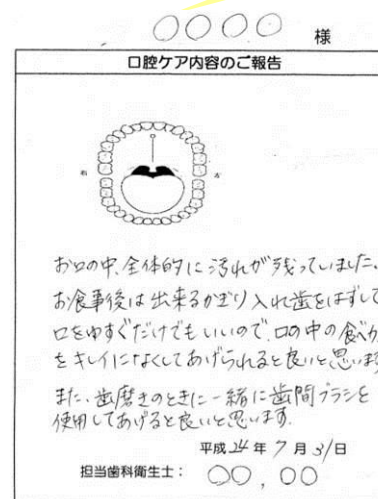 〇〇〇〇 様
口腔ケア内容のご報告
右 左
お口の中、全体的に汚れが残っていました。
お食事後は出来るかぎり入れ歯をはずして
口をゆすぐだけでもいいので、口の中の食べカ
をキレイになくしてあげられると良いと思いま
また、歯磨きのときに一緒に歯間ブラシを
使用してあげると良いと思います。
平成24年7月31日
担当歯科衛生士: 〇〇、〇〇